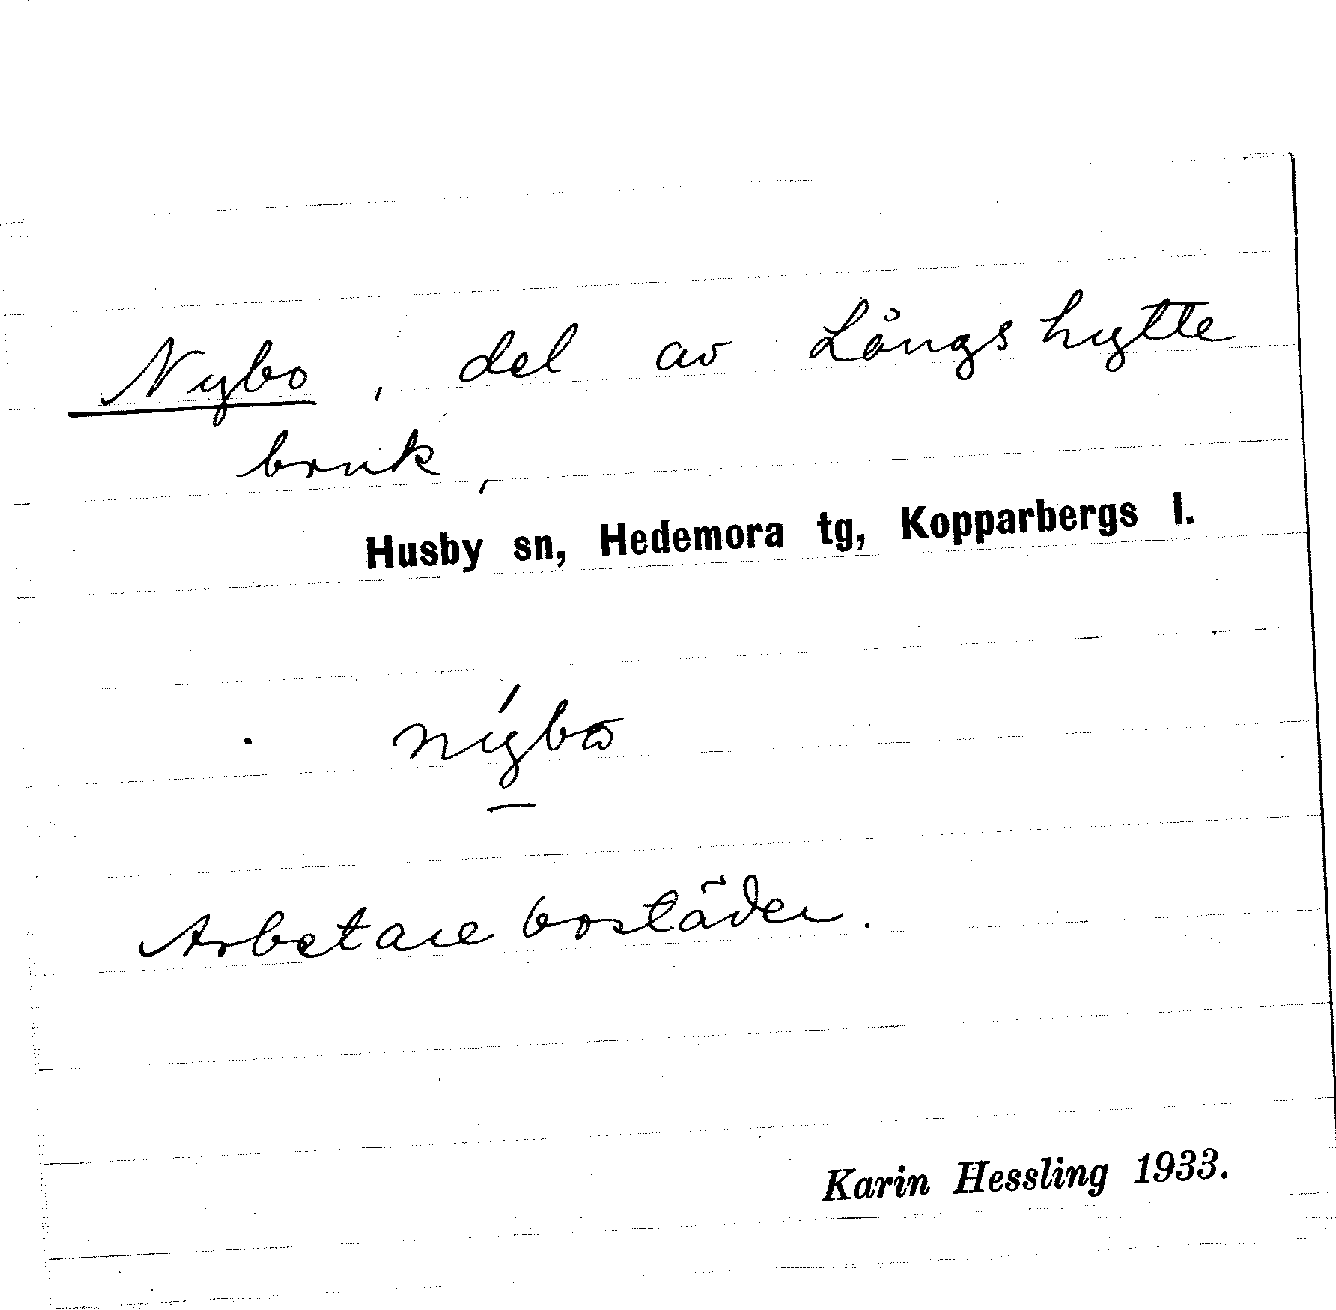 Nybo, del av Långshytte
bruk,
Husby sn, Hedemora tg, Kopparbergs l.
nýbo
Arbetarebostäder.
Karin Hessling 1933.